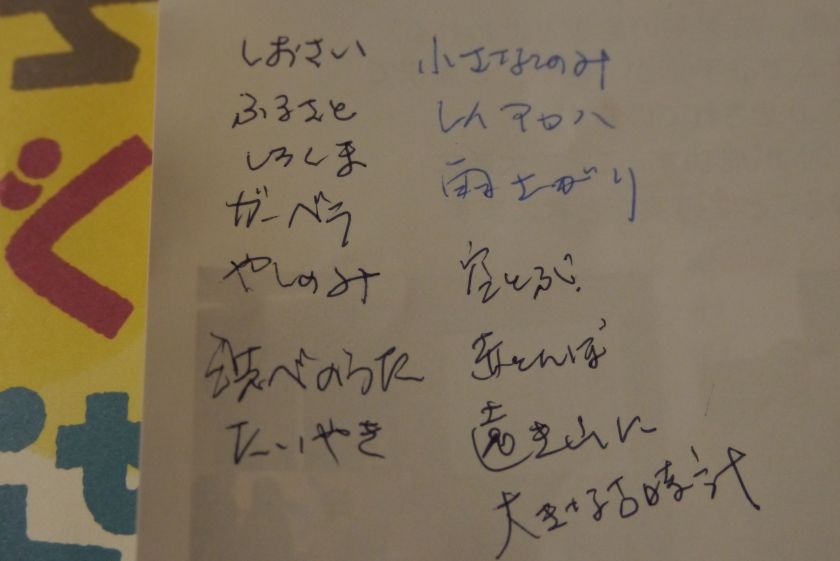 しおさい
ふるさと
しろくま
ガーベラ
やしのみ
浜べのうた
たいやき
小さなこのみ
雨上がり
空とぶ
赤とんぼ
遠き山に
大きな古時計